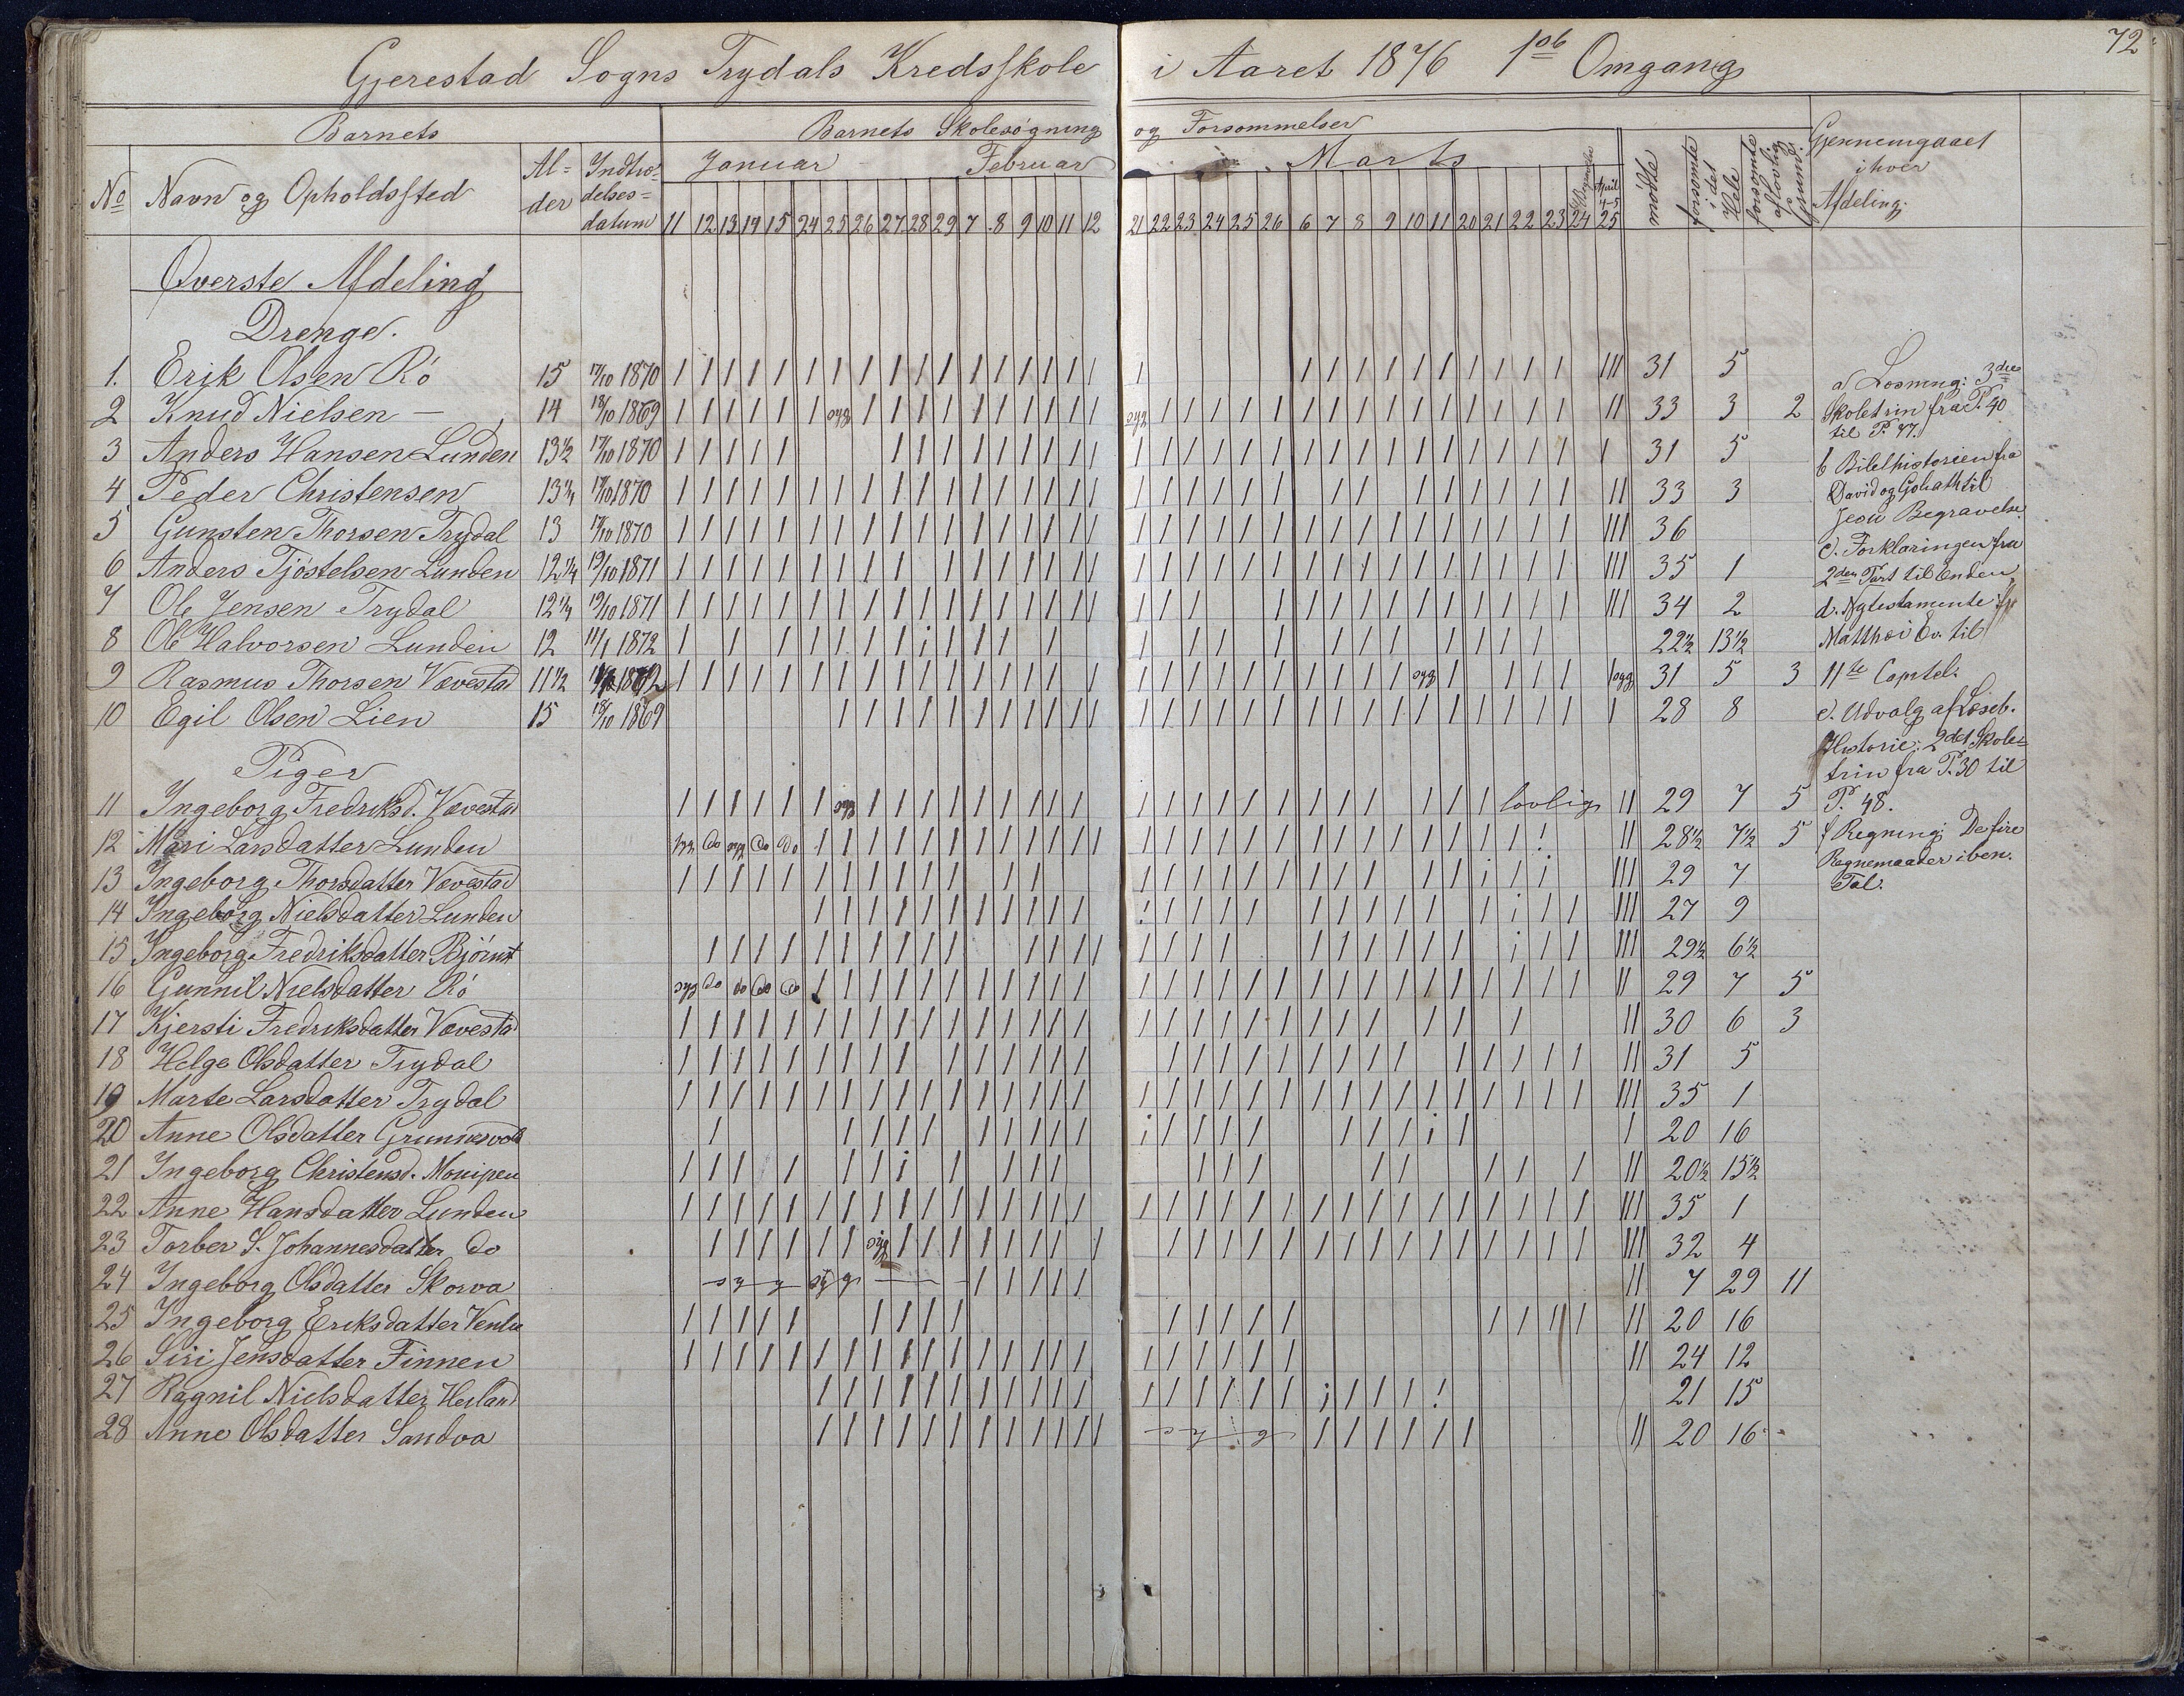 Gjerestad Sogns Trydals Kredsskole i Aaret 1876 1ste Omgang
72
Barnets
Barnets Skolesøgning og Forsømmelser
No
Navn og Opholdssted
Al=der
Indtræ=delses=datum
Januar
Februar
Marts
April 4-5
11 12 13 14 15 24 25 26 27 28 29 7 8 9 10 11 12
21 22 23 24 25 26 6 7 8 9 10 11 20 21 22 23 24 25
mødte
forsømte i det Hele
forsømte af lovlig Grund.
Gjennemgaaet i hver Afdeling.
Øverste Afdeling
Drenge.
1. Erik Olsen Rö 15 17/10 1870 31 5
2 Knud Nielsen — 14 18/10 1869 syg syg 33 3 2
3 Anders Hansen Lunden 13 1/2 17/10 1870 31 5
4 Peder Christensen 13 1/4 17/10 1870 33 3
5 Gunsten Thorsen Trydal 13 17/10 1870 36
6 Anders Tjöstelsen Lunden 12 1/4 19/10 1871 35 1
7 Ole Jensen Trydal 12 1/4 19/10 1871 34 2
8 Ole Halvorsen Lunden 12 11/1 1872 22 1/2 13 1/2
9 Rasmus Thorsen Vævestad 11 1/2 1872 syg syg 31 5 3
10 Egil Olsen Lien 15 18/10 1869 28 8
Piger
11 Ingeborg Fredriksd. Vævestad syg lovlig 29 7 5
12 Mari Larsdatter Lunden syg do syg do do 28 1/2 7 1/2 5
13 Ingeborg Thorsdatter Vævestad 29 7
14 Ingeborg Nielsdatter Lunden 27 9
15 Ingeborg Fredriksdatter Björnst 29 1/2 6 1/2
16 Gunnil Nielsdatter Rö syg do do do do 29 7 5
17 Kjersti Fredriksdatter Vævestad 30 6 3
18 Helge Olsdatter Trydal 31 5
19 Marte Larsdatter Trydal 35 1
20 Anne Olsdatter 20 16
21 Ingeborg Christensd. 20 1/2 15 1/2
22 Anne Hansdatter Lunden 35 1
23 Torber S. Johannesdatter do syg 32 4
24 Ingeborg Olsdatter Skorva syg 7 29 11
25 Ingeborg Eriksdatter 20 16
26 Siri Jensdatter Finnen 24 12
27 Ragnil Nielsdatter Heiland 21 15
28 Anne Olsdatter Sandva 20 16
a Læsning: 3die
Skoletrin fra P. 40
til P. 47.
b Bibelhistorien fra
David og Goliath til
Jesu Begravelse
c. Forklaringen fra
2den Part til Enden
d. Nytestamente fra
Matthæi Ev. til
11te Capitel.
e. Udvalg af Læseb.
Historie: 2det Skole=
trin fra P. 30 til
P. 48.
f Regning: De fire
Regnemaader i ben.
Tal.